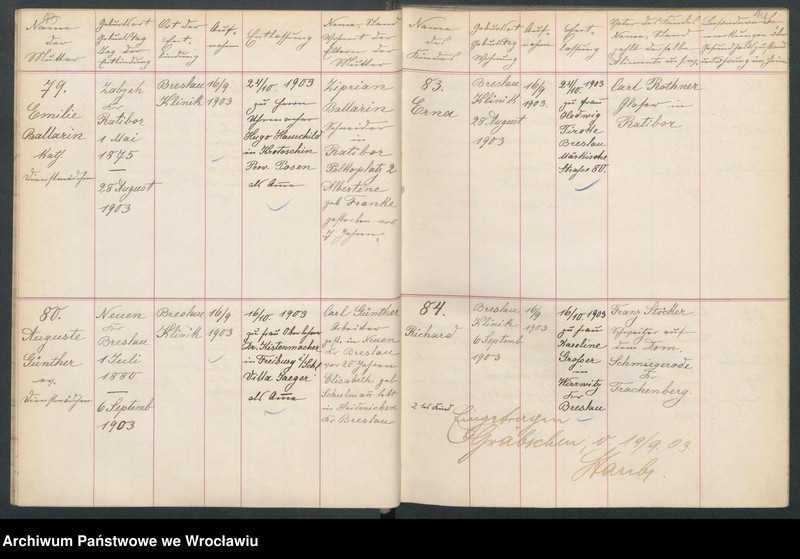 Name
der
Mutter
Geburtsort
Geburtstag
Tag der
Entbindung
Ort der
Ent-
bindung
Auf-
nahme
Entlassung
Name, Stand
Wohnort der
Eltern der
Mutter
79.
Emilie
Ballarin
kath.
Dienstmädchen
Ratibor
1 Mai
1875
28 August
1903
Breslau
Klinik
16/9
1903
24/10. 1903
zu Herrn
Uhrmacher
Hugo Hauschild
in Krotoschin
Prov. Posen
als Amme
Ziprian
Ballarin
Schneider
in
Ratibor
Polkoplatz 2
Albertine
geb Franke
gestorben vor
7 Jahren
80.
Auguste
Günther
ev.
Dienstmädchen
Neuen
Kr
Breslau
1 Juli
1880
6 Septemb
1903
Breslau
Klinik
16/9
1903
16/10. 1903
zu Frau Oberlehrer
Dr. Kistenmacher
in Freiburg i/Schl
Villa Jaeger
als Amme
Carl Günther
Arbeiter
gest. in Neuen
Kr Breslau
vor 20 Jahren
Elisabeth geb
lebt
in Haidänichen
Kr Breslau
Name
des
Kindes
Geburtsort
Geburtstag
Wohnung
Auf-
nahme
Ent-
lassung
Vater des Kindes
Name, Stand
83.
Erna
Breslau
Klinik
28 August
1903
16/9
1903.
24/10. 1903
zu Frau
Hedwig
Tiroke
Breslau
Märkische
Straße 80.
Carl Rothner
Glaser in
Ratibor
84.
Richard
2 tes Kind
Breslau
Klinik
6 Septemb
1903
16/9
1903
16/10. 1903
zu Frau
Karoline
Grosser
in
Wirrwitz
Kr
Breslau
Franz Stöcker
Schweizer auf
dem Dom.
Schmiegerode
Kr
Trachenberg.
Eingetragen
Gräbschen, d. 19/9. 03.
Archiwum Państwowe we Wrocławiu